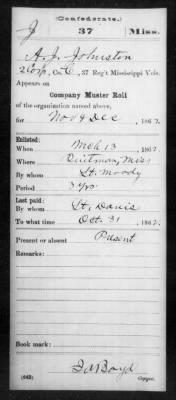 (Confederate.)
J 37 Miss.
A. J. Johnston
2 Corp, Co. C, 37 Reg't Mississippi Vols.
Appears on
Company Muster Roll
of the organization named above,
for Nov & Dec, 1862.
Enlisted:
When Mch 13, 1862.
Where Quitman, Miss
By whom Lt. Moody
Period 3 yrs.
Last paid:
By whom Lt. Davis
To what time Oct. 31, 1862.
Present or absent Present
Remarks:
Book mark:
J A Boyd
(642) Copyist.